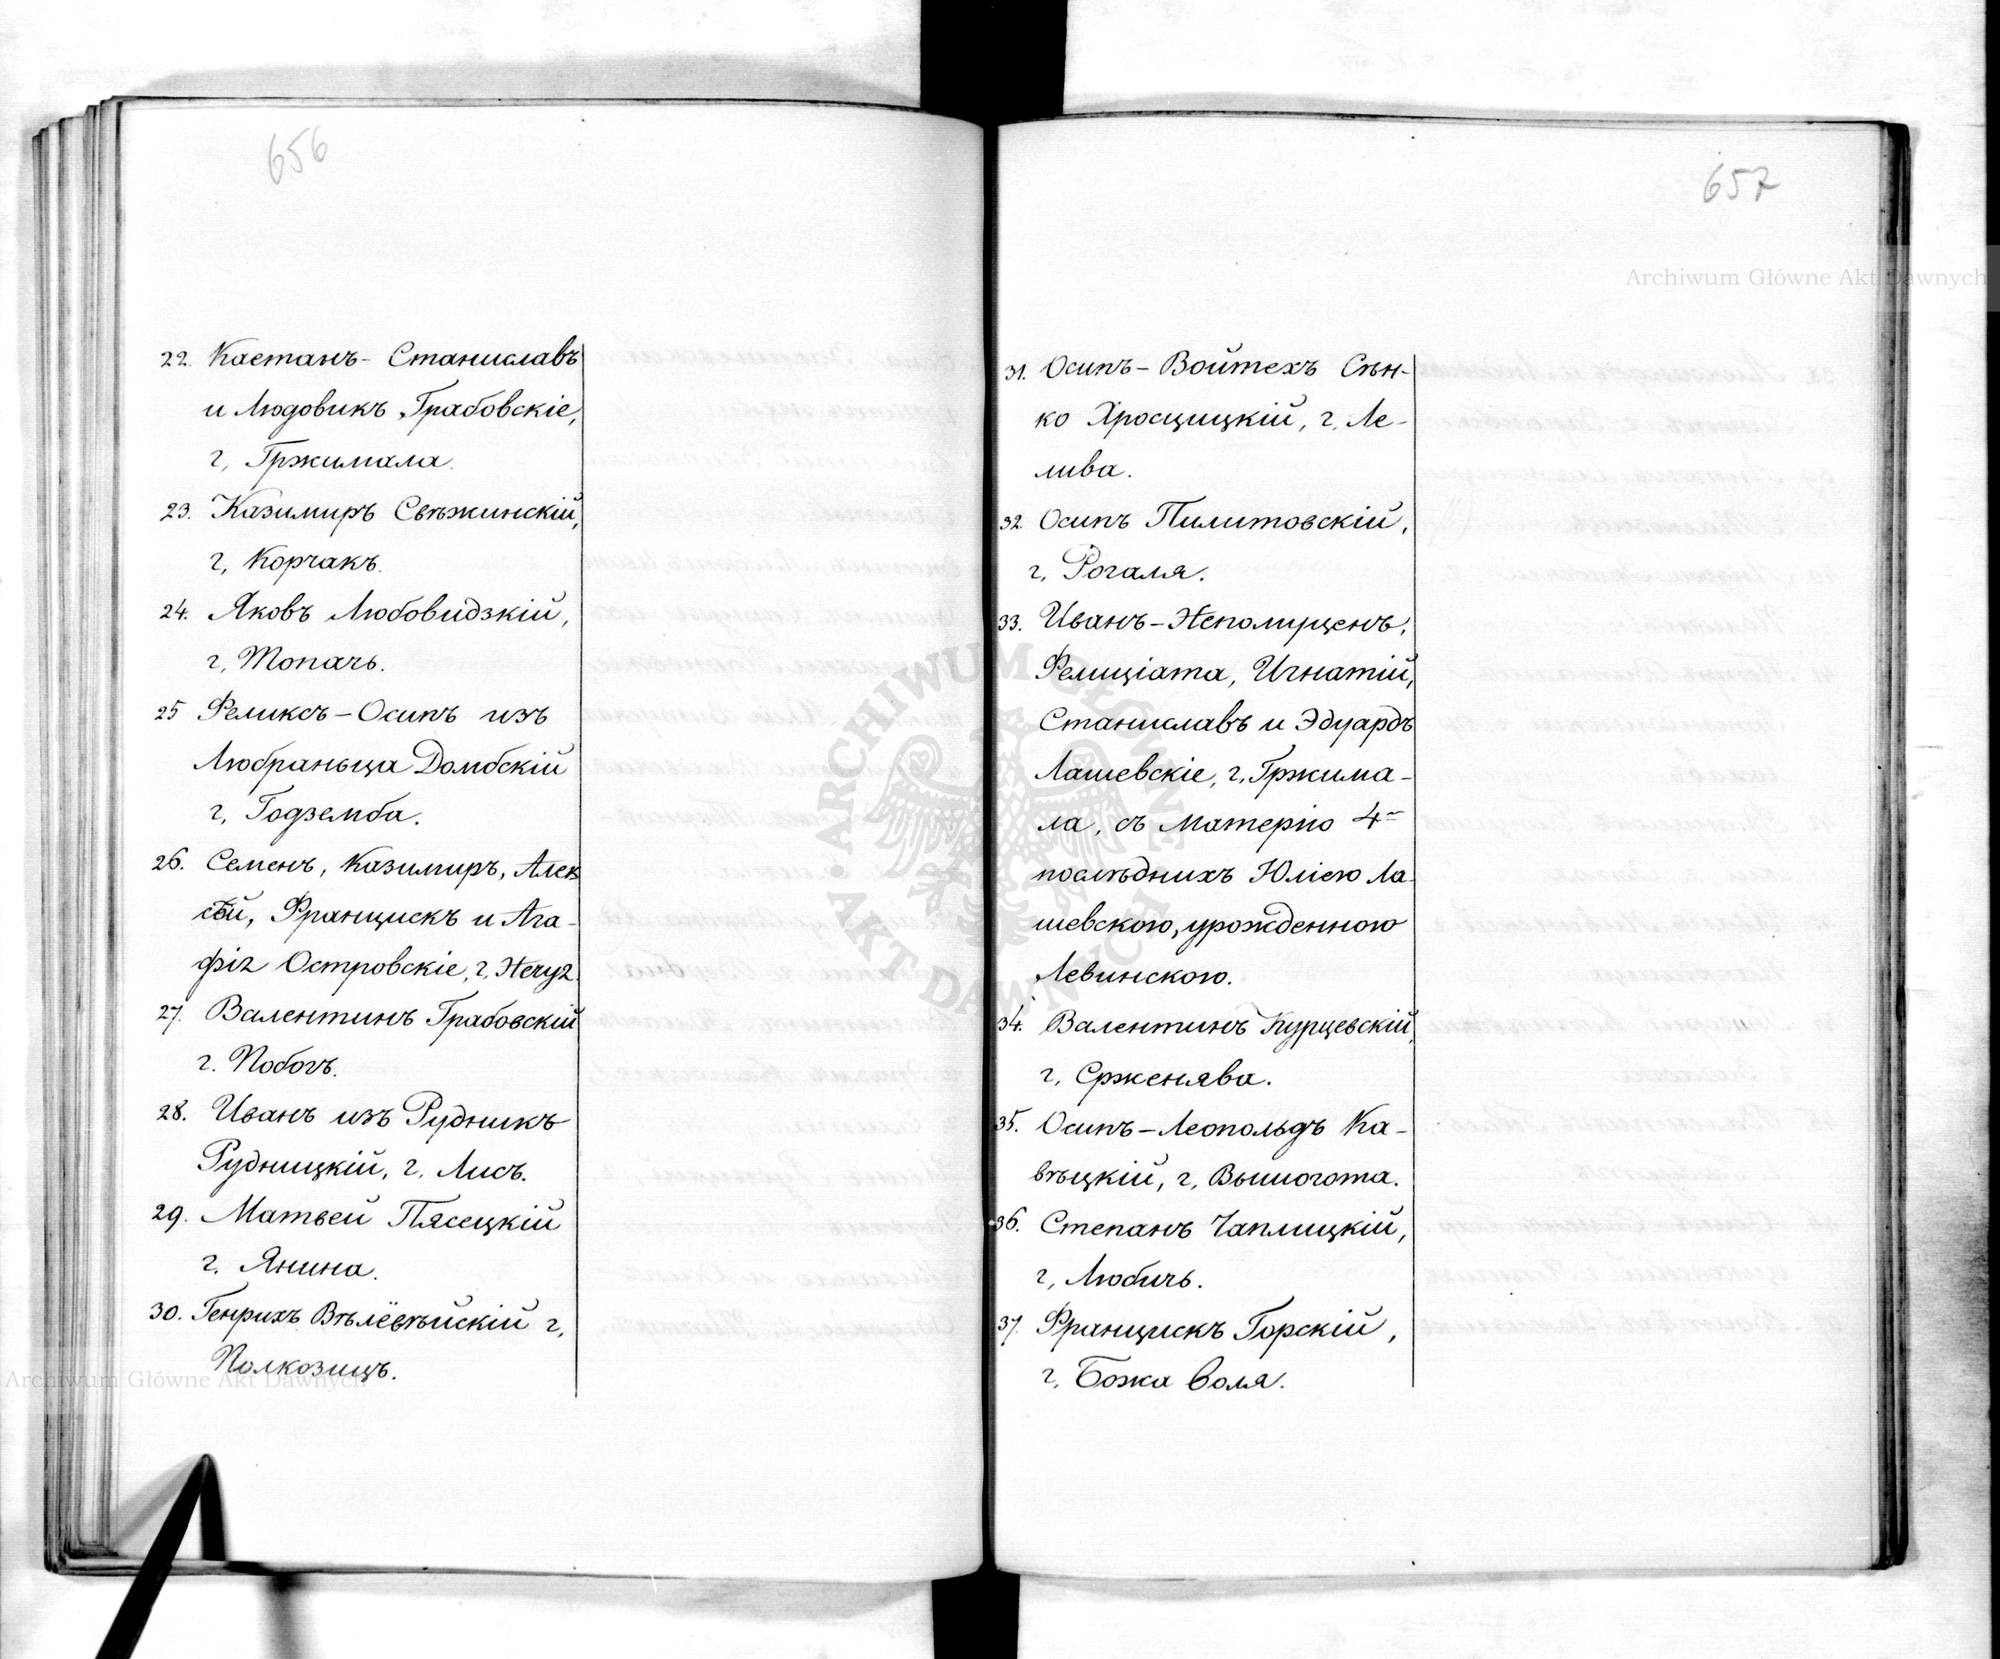 656
22. Каетанъ - Станиславъ
и Людовикъ Грабовскіе,
г. Гржимала.
23. Казимиръ Свѣжинскій,
г. Корчакъ.
24. Яковъ Любовидзкій,
г. Топачь.
25 Феликсъ - Осипъ изъ
Любраньца Домбскій
г. Годземба.
26. Семенъ, Казимиръ, Алек
сѣй, Францискъ и Ага-
фія Островскіе, г. Нечуя.
27. Валентинъ Грабовскій
г. Побогъ.
28. Иванъ изъ Рудникъ
Рудницкій, г. Лисъ.
29. Матвей Пясецкій
г. Янина.
30. Генрихъ Вѣлёвѣйскій г.
Полкозицъ.
657
31. Осипъ - Войтехъ Сѣн-
ко Хросцицкій, г. Ле-
лива.
32. Осипъ Пилитовскій,
г. Рогаля.
33. Иванъ - Непомуценъ,
Фелиціата, Игнатій,
Станиславъ и Эдуардъ
Лашевскіе, г. Гржима-
ла, съ матерію 4
послѣднихъ Юліею Ла-
шевскою, урожденною
Левинскою.
34. Валентинъ Курцевскій,
г. Сржснява.
35. Осипъ - Леопольдъ Ка-
вѣцкій, г. Вышогота.
36. Степанъ Чаплицкій,
г. Любичь.
37. Францискъ Горскій,
г. Божа воля.
Archiwum Główne Akt Dawnych
Archiwum Główne Akt Dawnych
ARCHIWUM GŁÓWNE
AKT DAWNYCH